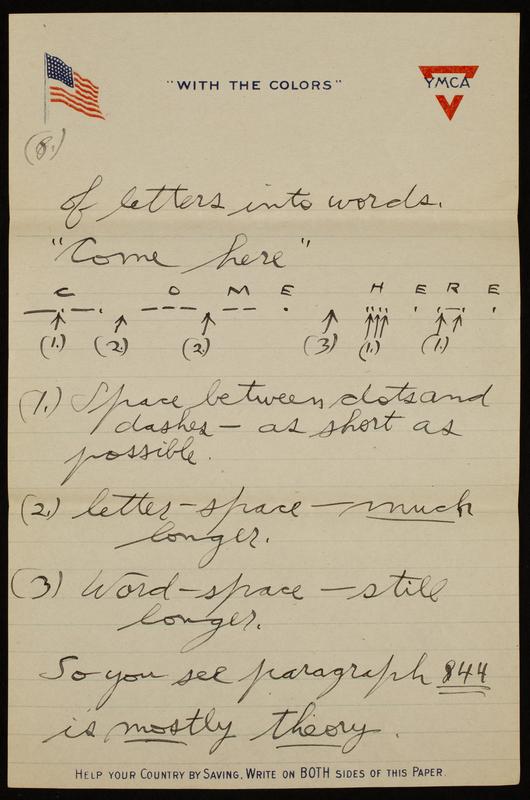 "WITH THE COLORS"
YMCA
(8.)
of letters into words.
"Come here"
C O M E H E R E
— · — · — — — — — · · · · · · · — · ·
(1.) (2.) (2.) (3) (1.) (1.)
(1.) Space between dots and
dashes — as short as
possible.
(2.) letter-space — much
longer.
(3) Word-space — still
longer.
So you see paragraph 844
is mostly theory.
HELP YOUR COUNTRY BY SAVING. WRITE ON BOTH SIDES OF THIS PAPER.